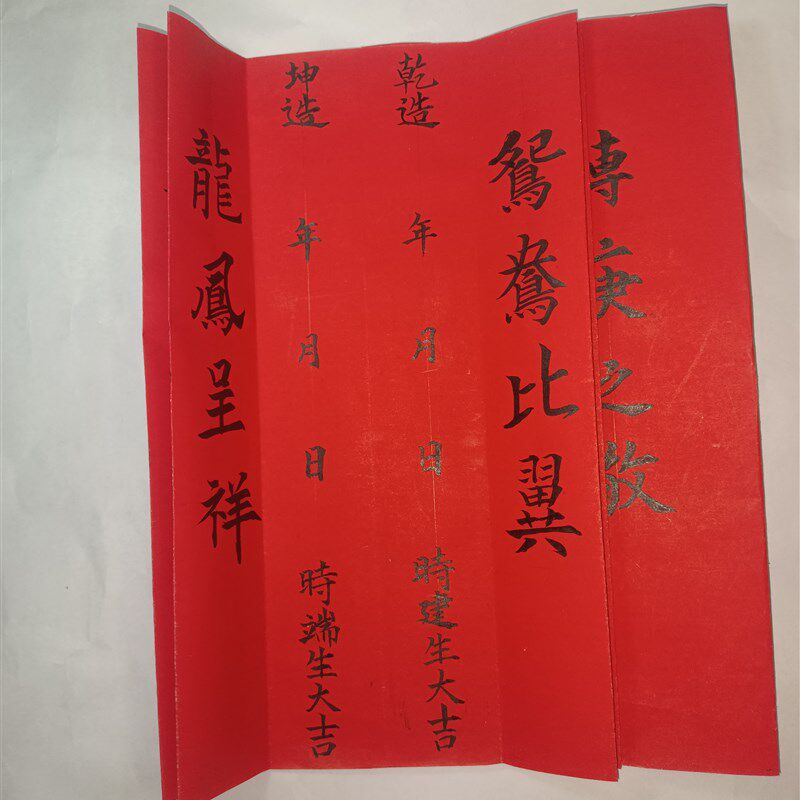 傳庚之敬
鴛鴦比翼
乾造 年 月 日 時建生大吉
坤造 年 月 日 時端生大吉
龍鳳呈祥